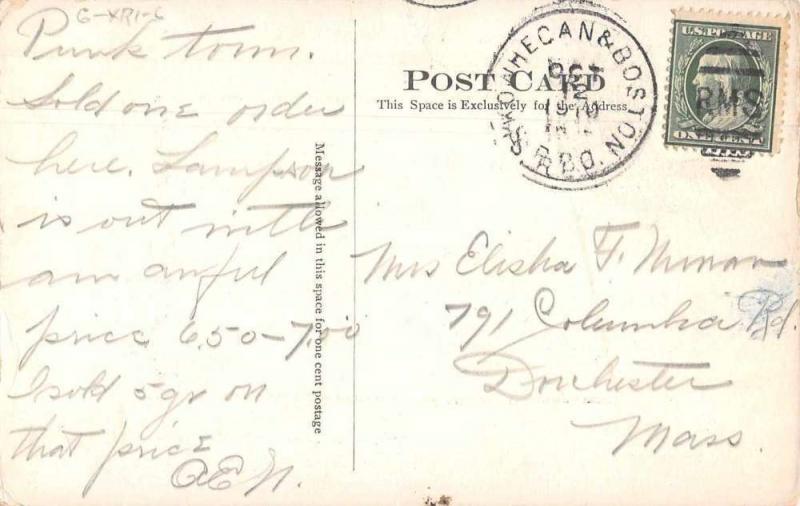 G-XR1-6
Punk town.
Sold one order
here. Lampson
is out with
am awful
price 6.50-7.00
I sold 5 gr on
that price
Message allowed in this space for one cent postage
POST CARD
This Space is Exclusively for the Address
SKOWHEGAN & BOSTON
OCT
12
1910
R.P.O.
RMS
U.S. POSTAGE
ONE CENT
Mrs Elisha F.
791 Columbia Rd.
Dorchester
Mass.